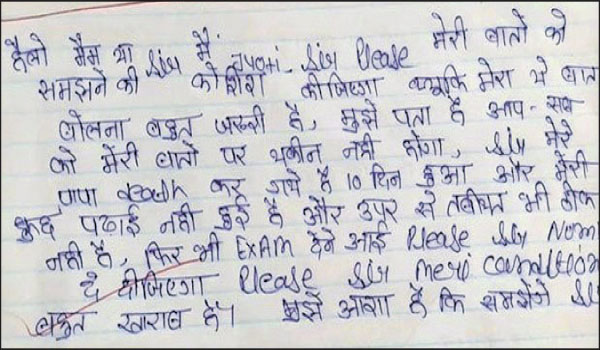 हैलो मैम या Sir मैं Jyoti Sir Please मेरी बातो को
समझने की कोशिश कीजिएगा क्यूकि मेरा ये बात
बोलना बहुत जरूरी है, मुझे पता है आप सब
को मेरी बातो पर यकीन नही होगा, Sir मेरे
पापा death कर गये है 10 दिन हुआ और मेरी
कुछ पढाई नही हुई है और उपर से तबीयत भी ठीक
नही है, फिर भी EXAM देने आई Please Sir Nom
दे दीजिएगा Please Sir meri condition
बहुत खराब है। मुझे आशा है कि समझेंगे